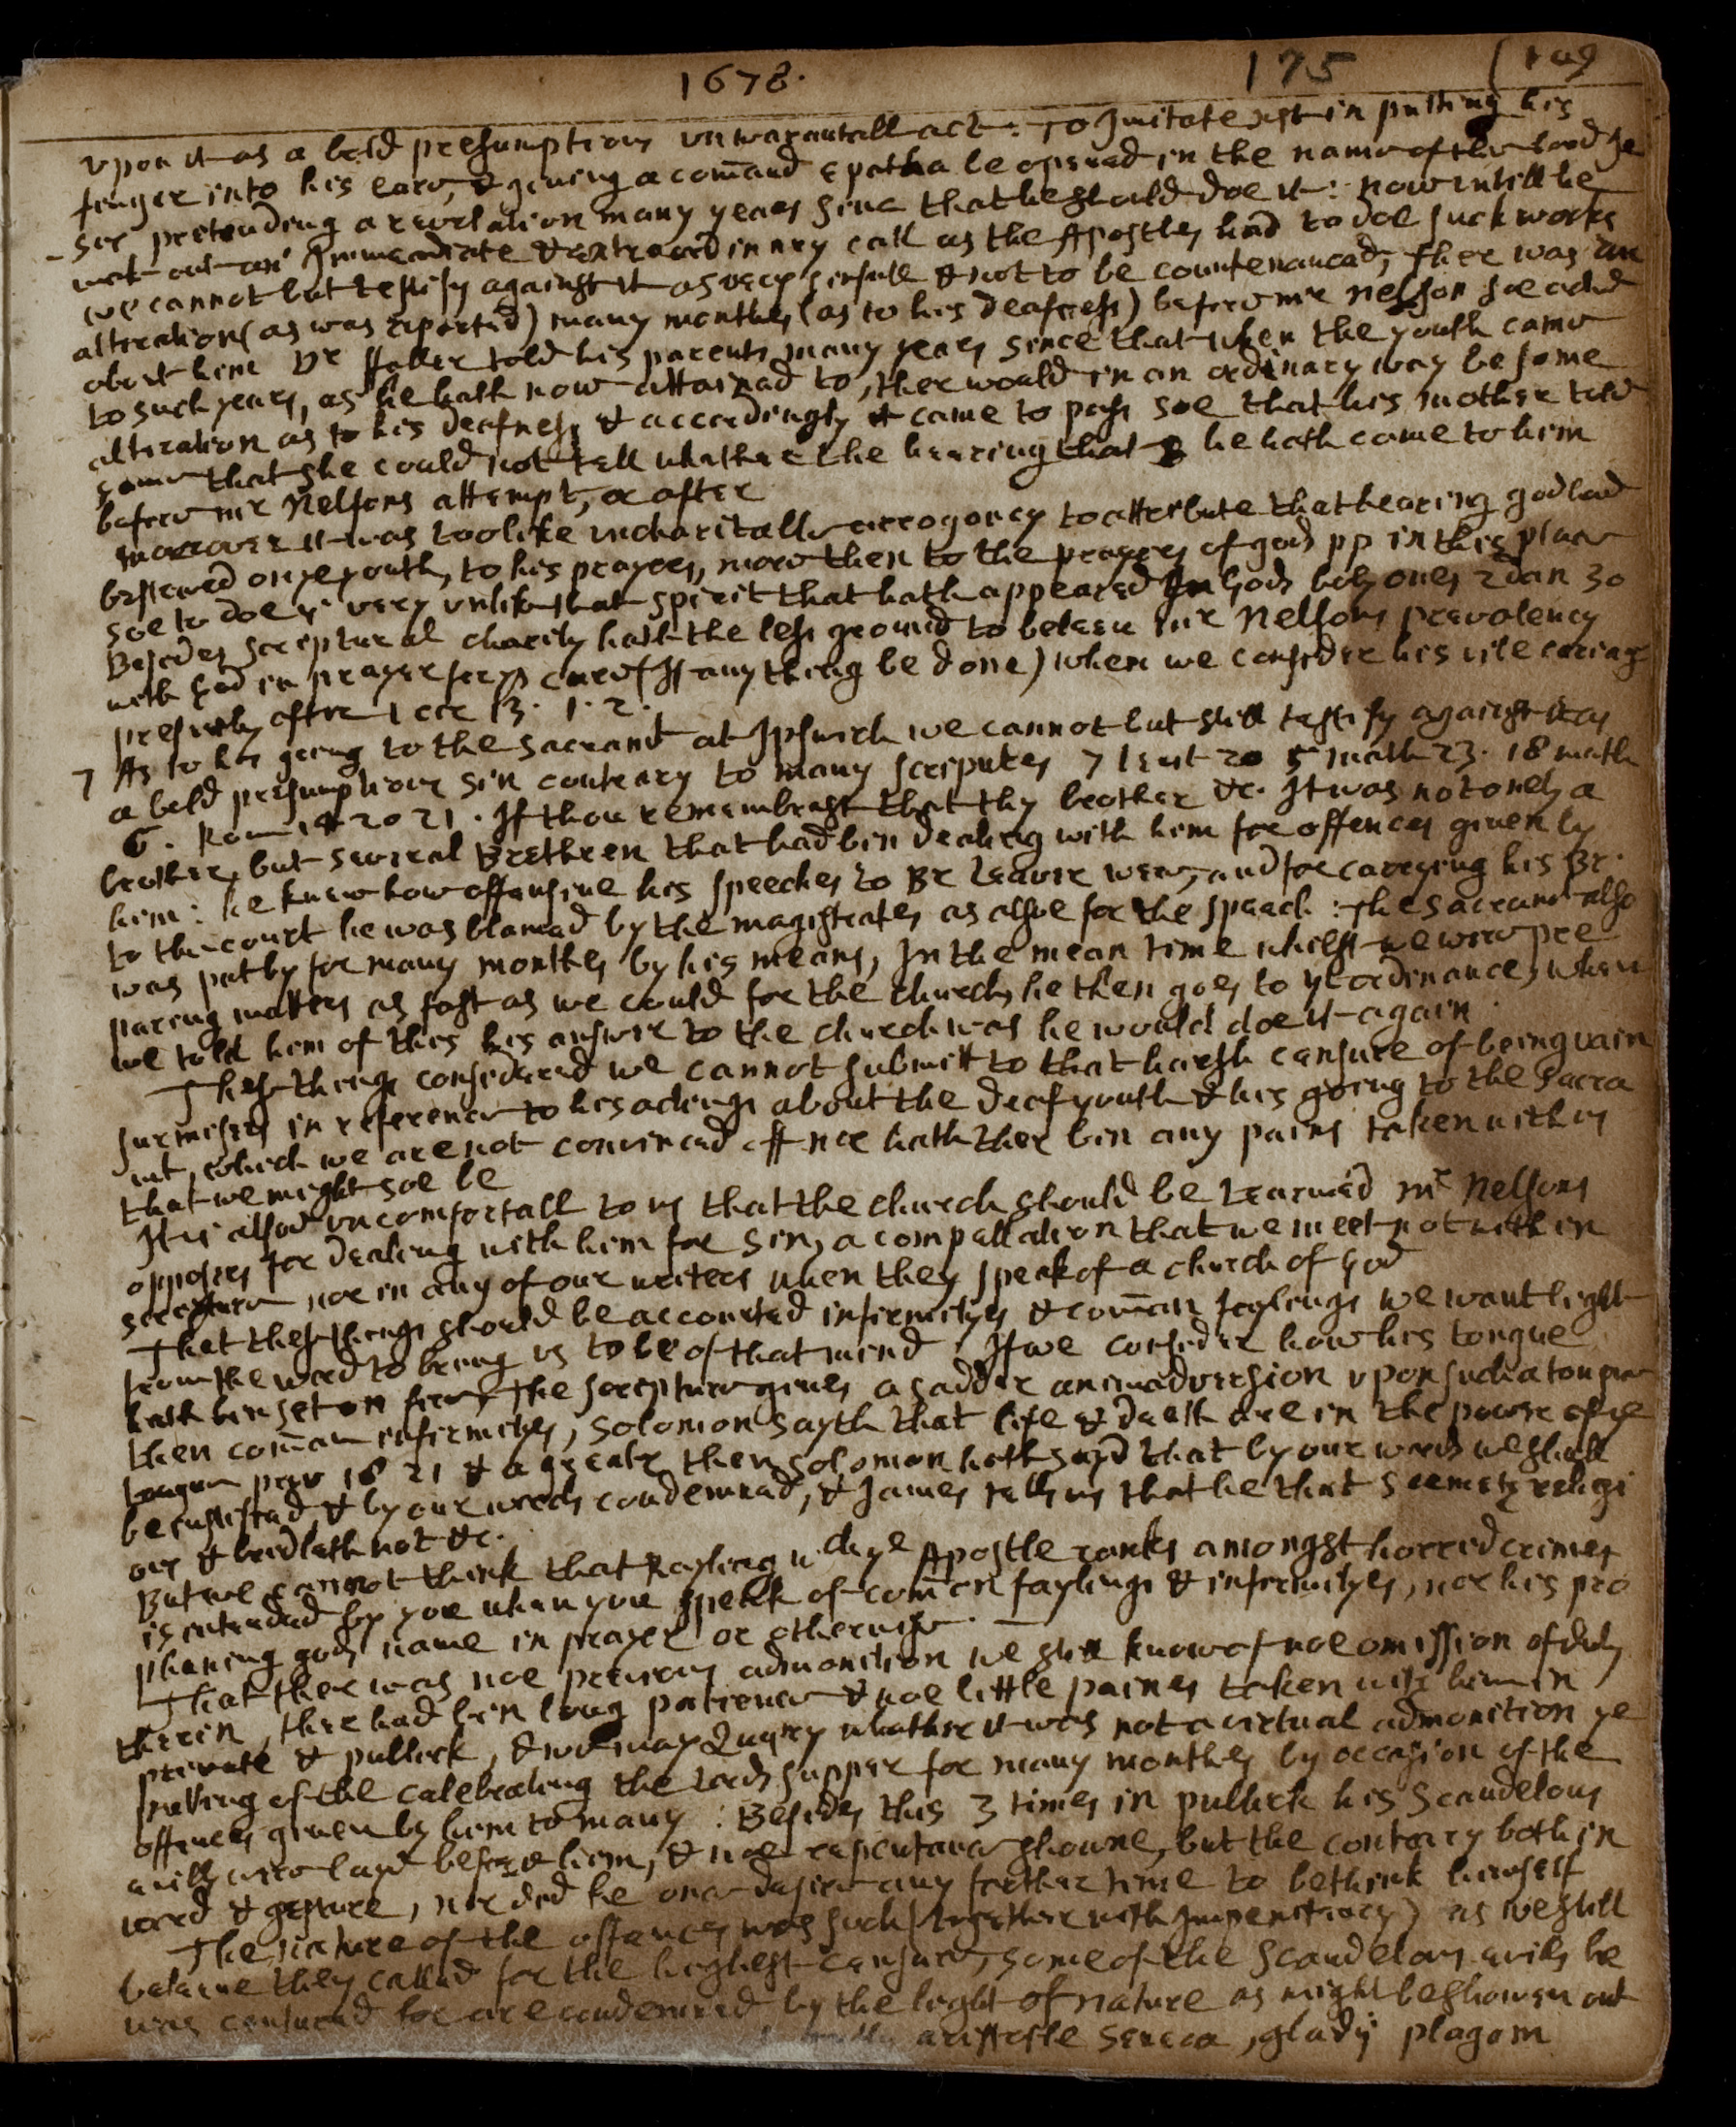 1678. 175
upon it as a bold presumptious unwarantall act: To Imitate xst in putting his
finger into his eare, & giving a comand Epatha be opened in the name of the Lord Je
sus pretending a revelation many years since that he should doe it: now intill be
without an Immeadiate & extreaordinary call as the Apostles had to doe such works
we cannot but testify against it as very sinfull & not to be countenanced, ther was an
alteration (as was reported) many monthes (as to his deafness) before mr Nelson soe acted
about him Dr told his parents many years since that when the youth came
to such years, as he hath now attained to, ther would in an ordinary way be some
alteration as to his deafness & accordingly it came to pass soe that his mother told
some that she could not tell whether the hearing that he hath came to him
before mr Nelsons attempt, or after
moreover it was too like uncharitable arrogancy to attribute that hearing god had
bestowed on ye youth, to his prayers, more then to the prayers of gods pp in this place
soe to doe is very unlike that spirit that hath appeared In Gods holy ones 2 dan 30
Besides scriptural charity hath the less ground to beleeu mr Nelsons prevalency
with god in prayer for ys cure (If any thing be done) when we consider his vile cariag
presently after 1 cor 13. 1. 2.
7 As to his going to the sacrament at Ipswich we cannot but still testify against it as
a bold presumptious sin contrary to many scriptures 7 levit 20 5 math 23. 18 math
6. Rom 14 20 21. If thou remembrest that thy brother &c. It was not only a
brother, but several Brethren that had bin dealing with him for offences given by
him: he knew how offensive his speeches to Br Leaver were, and for carrying his Br.
to the court he was blamed by the magistrates as alsoe for the speech: the sacrament also
was put by for many monthes by his means, In the mean time whilst we were pre
paring matters as fast as we could for the church, he then goes to yt ordinance, when
we told him of this his answer to the church was he would doe it again
These things considered we cannot submitt to that harsh censure of being vain
surmises in reference to his actings about the deaf youth & his going to the sacra
mt, which we are not convinced off nor hath ther bin any pains taken with us
that we might soe be
It is alsoe uncomfortall to us that the church should be tearmed mr Nelsons
opposers for dealing with him for sin, a compellation that we meet not with in
scripture nor in any of our writers when they speak of a church of god
That these things should be accounted infirmityes & coman faylings we want light
from the word to bring us to be of that mind. If we consider how his tongue
hath bin set on fire, the scripture gives a sadder animadversion upon such a tongue
then coman infirmityes, Solomon sayth that life & death are in the power of ye
tongue prov 18 21 & a greater then Solomon hath sayd that by our words we shall
be iustified, & by our words condemned, & James tells us that he that seemeth religi
ous & bridleth not &c.
But we cannot think that Rayling wch ye Apostle ranks amongst horred crimes
is intended by you when you speak of comon faylings & infirmityes, nor his pro
phaning gods name in prayer or otherwise.
That ther was noe previous admonition we still know of noe omission of duty
therin, there had bin long patience & noe little paines taken with him in
private & publick, & we may Query whether it was not a virtual admonition ye
putting of the celebrating the Lords supper for many monthes by occasion of the
offences given by him to many: Besides this 3 times in publick his scandelous
evills were layd before him, & noe repentance showne, but the contrary both in
word & gesture, nor did he once desire any farther time to bethink himself
The nature of the offences was such (together with Impenitency) as we still
beleive they called for the highest censure, some of the scandelous evils he
was censured for are condemned by the light of nature as might be showen out
aristotle Seneca, gladij plagam